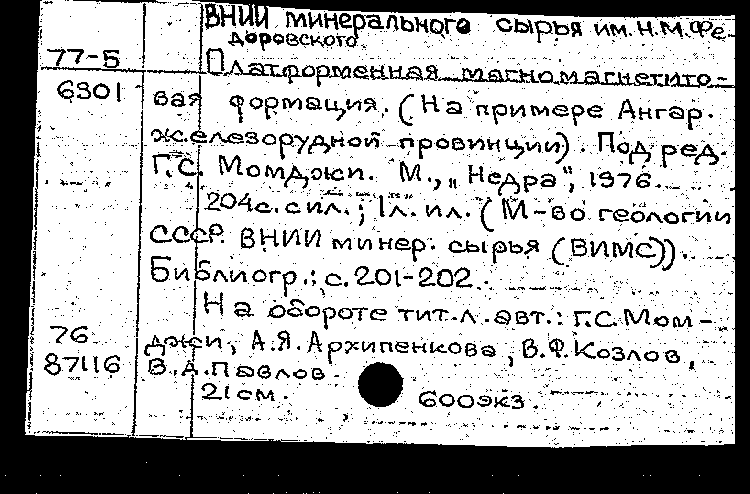 ВНИИ минерального сырья им. Н.М. Фе-
доровского.
77-Б
Платформенная магномагнетито-
6301
вая формация. (На примере Ангар.
железорудной провинции). Под ред.
Г.С. Момджи. М., „Недра", 1976.
204с. с ил.; 1л. ил. (М-во геологии
СССР. ВНИИ минер. сырья (ВИМС)).
Библиогр.: с. 201-202.
На обороте тит. л. авт.: Г.С. Мом-
76
джи, А.Я. Архипенкова, В.Ф. Козлов,
87116
В.А. Павлов.
21 см.
600экз.